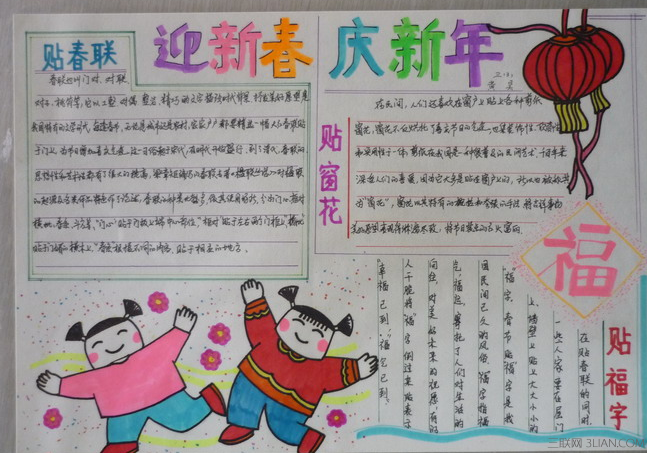 迎新春 庆新年
三(3)
贴春联
春联也叫门对、对联、
对子、桃符等,它以工整、对偶、简洁、精巧的文字描绘时代背景,抒发美好愿望,是
我国特有的文学形式。每逢春节,无论是城市还是农村,家家户户都要精选一幅大红春联贴
于门上,为节日增加喜庆气氛。这一习俗起于宋代,在明代开始盛行,到了清代,春联的
思想性和艺术性都有了很大的提高,梁章钜编写的春联专著《楹联丛话》对楹联
的起源及各类作品特色作了论述。春联的种类比较多,依其使用场所,可分为门心、框对、
横批、春条、斗方等。“门心”贴于门板上端中心部位;“框对”贴于左右两个门框上;“横批”
贴于门楣的横木上;“春条”根据不同的内容,贴于相应的地方。
贴窗花
在民间,人们还喜欢在窗户上贴上各种剪纸
窗花。窗花不仅烘托了喜庆的节日气氛,也集装饰性、欣赏性
和实用性于一体。剪纸在我国是一种很普及的民间艺术,千百年来
深受人们的喜爱,因它大多是贴在窗户上的,所以也被称其
为“窗花”。窗花以其特有的概括和夸张的手法将吉祥事物
福
贴福字
在贴春联的同时,
一些人家要在屋门
上、墙壁上贴上大大小小的
“福”字。春节贴“福”字,是我
国民间已久的风俗。“福”字指福
气、福运,寄托了人们对生活的
向往,对美好未来的祝愿。有的
人干脆将“福”字倒过来贴,表示
“幸福已到”“福气已到”。
三联网 3LIAN.COM